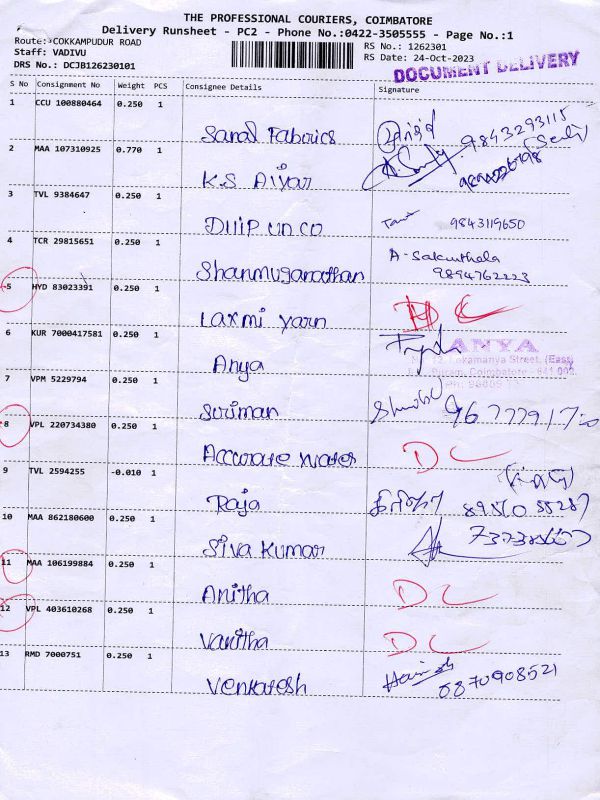 THE PROFESSIONAL COURIERS, COIMBATORE
Delivery Runsheet - PC2 - Phone No.:0422-3505555 - Page No.:1
Route: COKKAMPUDUR ROAD
Staff: VADIVU
DRS No.: DCJB126230101
RS No.: 1262301
RS Date: 24-Oct-2023
DOCUMENT DELIVERY
S No Consignment No Weight PCS Consignee Details Signature
1 CCU 100880464 0.250 1
Saral Fabrics 9843293115
2 MAA 107310925 0.770 1
K.S Aiyar
3 TVL 9384647 0.250 1
Dilip un co 9843119650
4 TCR 29815651 0.250 1
Shanmuganathan A. Sakunthala
9894762223
5 HYD 83023391 0.250 1
Laxmi yarn DC
6 KUR 7000417581 0.250 1
Anya ANYA
Lokamanya Street, (East)
Puram, Coimbatore - 641 002.
7 VPM 5229794 0.250 1
Suriman
8 VPL 220734380 0.250 1
Accurate water DC
9 TVL 2594255 -0.010 1
Raja
10 MAA 862180600 0.250 1
Siva Kumar
11 MAA 106199884 0.250 1
Anitha DC
12 VPL 403610268 0.250 1
Vanitha DC
13 RMD 7000751 0.250 1
Venkatesh 6870908521